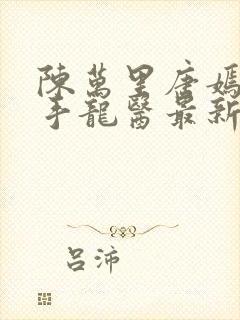 陳萬里唐嫣
手龍醫最新
呂沛